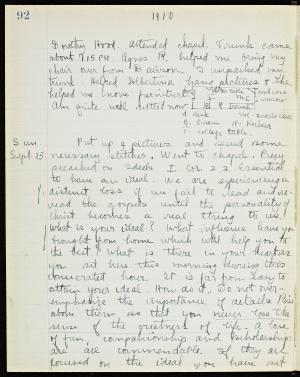 92
1910
Dorothy Hood. Attended chapel. Trunk came
about 7.15 P.M. Agnes R. helped me bring my
chair over from Davison. I unpacked my
trunk. Helped Albertina hang pictures & she
helped me move furniture
Am quite well settled now.
d. desk
T. college table.
Sun.
Sept. 25.
Put up 4 pictures and sewed some
necessary stitches. Went to chapel. Prexy
preached on Ideals I Cor 2:2 Essential
to have an ideal. We are experiencing a
distinct loss if we fail to read and re-
read the gospels until the personality of
Christ becomes a real thing to us!
What is your ideal? What influence have you
brought from home which will help you to
the best? What is there in your hearts as
you sit here this morning during this
consecrated hour. It is far from easy to
attain your ideal. How do it. Do not over-
emphasize the importance of details. Rise
above them so that you never lose the
sense of the greatness of life. A love
of fun, companionship and scholarship
are all commendable if they are
focused on the ideal you have set